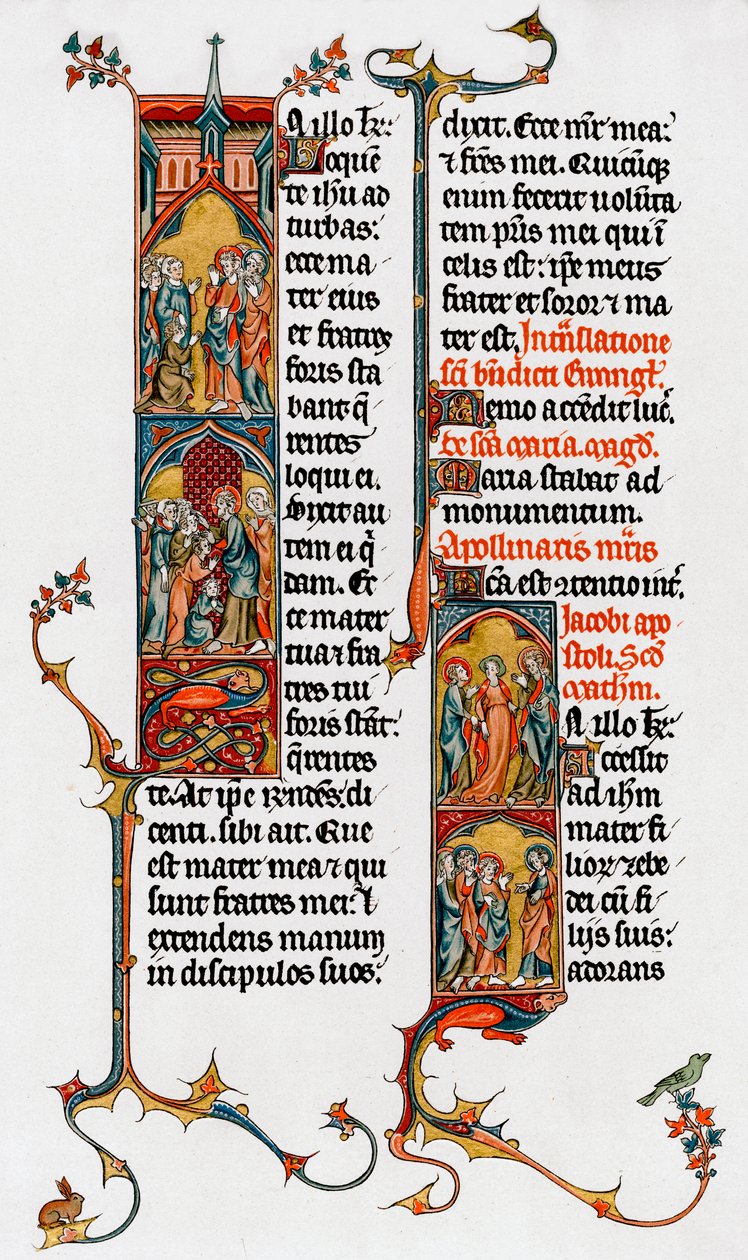 N illo tꝑr:
Loquē
te ihū ad
turbas:
ecce ma
ter eius
et fratres
foris sta
bant q̄
rentes
loqui ei.
Dixit au
tem ei q̄
dam. Ec
ce mater
tua ⁊ fra
tres tui
foris stāt:
q̄rentes
te. At ip̄e rn̄dēs. di
centi. sibi ait. Que
est mater mea ⁊ qui
sunt fratres mei? ⁊
extendens manum
in discipulos suos:
dixit. Ecce mr̄ mea:
⁊ fr̄es mei. Quicūqꝫ
enim fecerit uolūta
tem pr̄is mei qui ī
celis est: ip̄e meus
frater et soror ⁊ ma
ter est. In trāslatione
sc̄i bn̄dicti Euuangl̄.
Nemo accēdit luc̄.
De sc̄a maria. magd̄.
Maria stabat ad
monumentum.
Apollinaris mr̄is
Fc̄a est ↄtentio int̄.
Jacobi apo
stoli. Scd̄
math̄m.
N illo tꝑr:
Accessit
ad ih̄m
mater fi
lioꝝ zebe
dei cū fi
lijs suis:
adorans